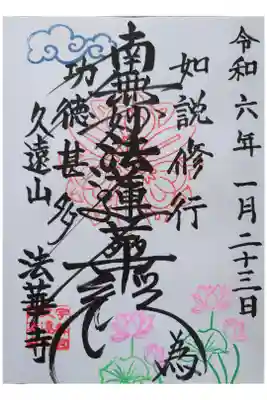 令和六年一月二十三日
如説修行
為
南無妙法蓮華経
功徳甚多
久遠山
法華寺